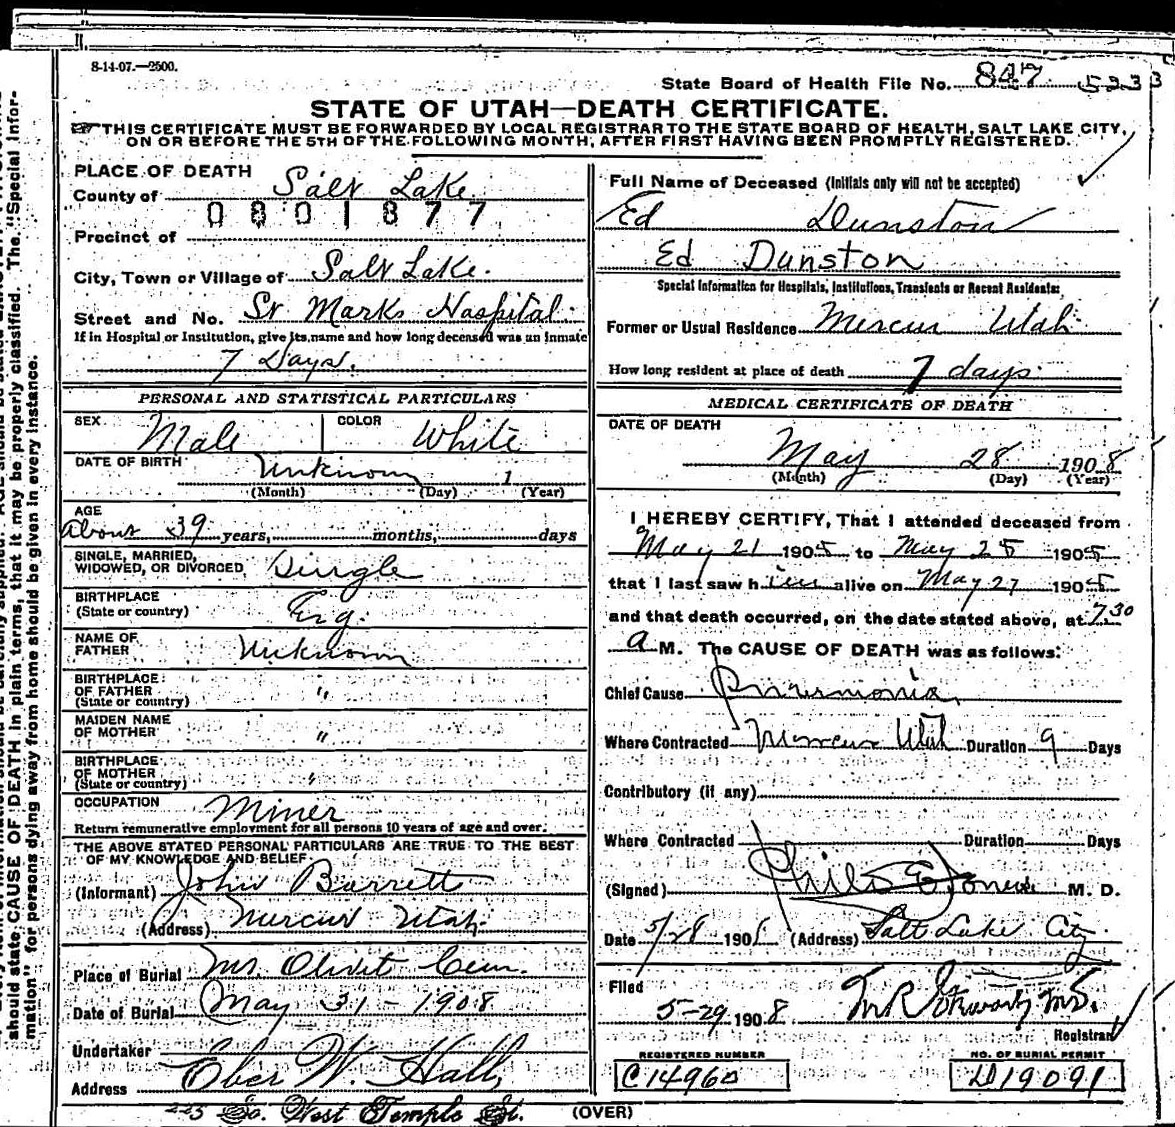 8-14-07.—2500.
State Board of Health File No. 847 5233
STATE OF UTAH—DEATH CERTIFICATE.
THIS CERTIFICATE MUST BE FORWARDED BY LOCAL REGISTRAR TO THE STATE BOARD OF HEALTH, SALT LAKE CITY,
ON OR BEFORE THE 5TH OF THE FOLLOWING MONTH, AFTER FIRST HAVING BEEN PROMPTLY REGISTERED.
PLACE OF DEATH
County of Salt Lake
0801877
Precinct of
City, Town or Village of Salt Lake.
Street and No. St Marks Hospital
If in Hospital or Institution, give its name and how long deceased was an inmate
7 Days.
PERSONAL AND STATISTICAL PARTICULARS
SEX Male COLOR White
DATE OF BIRTH Unknown 1
(Month) (Day) (Year)
AGE
About 39 years, months, days
SINGLE, MARRIED,
WIDOWED, OR DIVORCED Single
BIRTHPLACE
(State or country) Eng.
NAME OF
FATHER Unknown
BIRTHPLACE
OF FATHER
(State or country) "
MAIDEN NAME
OF MOTHER "
BIRTHPLACE
OF MOTHER
(State or country) "
OCCUPATION Miner
Return remunerative employment for all persons 10 years of age and over.
THE ABOVE STATED PERSONAL PARTICULARS ARE TRUE TO THE BEST
OF MY KNOWLEDGE AND BELIEF
(Informant) John Barrett
(Address) Mercur Utah
Place of Burial Mt. Olivet Cem.
Date of Burial May 31-1908
Undertaker Eber W. Hall
Address
225 So. West Temple St.
Full Name of Deceased (Initials only will not be accepted)
Ed Dunston
Ed Dunston
Special Information for Hospitals, Institutions, Transients or Recent Residents:
Former or Usual Residence Mercur Utah
How long resident at place of death 7 days
MEDICAL CERTIFICATE OF DEATH
DATE OF DEATH
May 28 1908
(Month) (Day) (Year)
I HEREBY CERTIFY, That I attended deceased from
May 21 1908 to May 28 1908
that I last saw him alive on May 27 1908
and that death occurred, on the date stated above, at 7.30
a M. The CAUSE OF DEATH was as follows:
Chief Cause Pneumonia
Where Contracted Mercur Utah Duration 9 Days
Contributory (if any)
Where Contracted Duration Days
(Signed) Philo E Jones M. D.
Date 5/28 1908 (Address) Salt Lake City
Filed
5-29 1908 M.D.
Registrar
REGISTERED NUMBER
C14960
NO. OF BURIAL PERMIT
D19091
(OVER)
should state CAUSE OF DEATH in plain terms, that it may be properly classified. The "Special Infor-
mation" for persons dying away from home should be given in every instance.